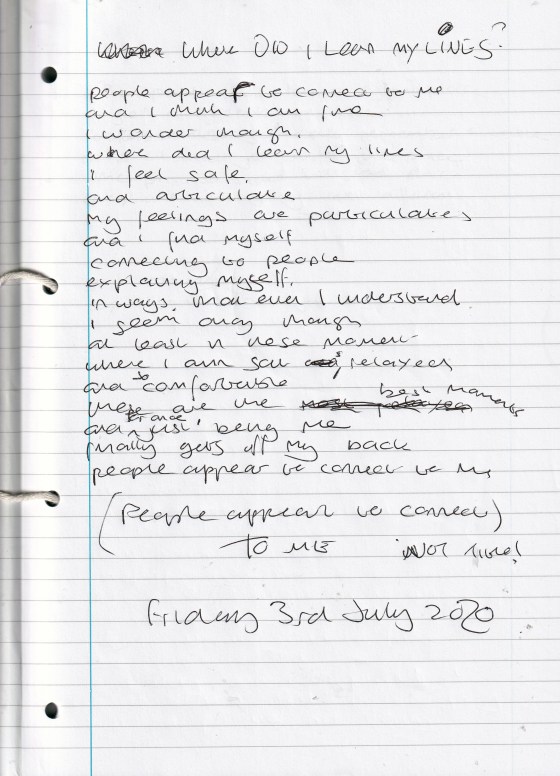 Where Did I Learn My LiNES?
people appear to connect to me
and I think I am fine
I wonder though.
where did I learn my lines
I feel safe.
and articulate
My feelings are particulates
and I find myself
connecting to people
explaining myself.
in ways. than ever I understand
I seem okay though
at least in these moments
where I am so relaxed
and so comfortable
these are the best moments
and just being me
finally gets off my back
people appear to connect to me
(People appear to connect)
TO ME NOT
Friday 3rd July 2020